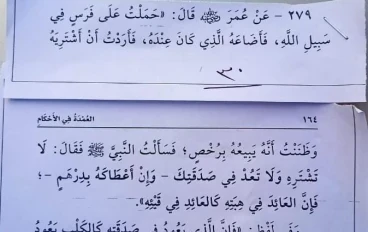 ٢٧٩ - عَنْ عُمَرَ ﷺ قَالَ: «حَمَلْتُ عَلَى فَرَسٍ فِي
سَبِيلِ اللَّهِ، فَأَضَاعَهُ الَّذِي كَانَ عِنْدَهُ، فَأَرَدْتُ أَنْ أَشْتَرِيَهُ
٣٠
١٦٤ العُمْدَةُ فِي الأَحْكَامِ
وَظَنَنْتُ أَنَّهُ يَبِيعُهُ بِرُخْصٍ؛ فَسَأَلْتُ النَّبِيَّ ﷺ فَقَالَ: لَا
تَشْتَرِهِ وَلَا تَعُدْ فِي صَدَقَتِكَ - وَإِنْ أَعْطَاكَهُ بِدِرْهَمٍ -؛
فَإِنَّ العَائِدَ فِي هِبَتِهِ كَالعَائِدِ فِي قَيْئِهِ».
وَفِي لَفْظٍ: «فَإِنَّ الَّذِي يَعُودُ فِي صَدَقَتِهِ كَالكَلْبِ يَعُودُ